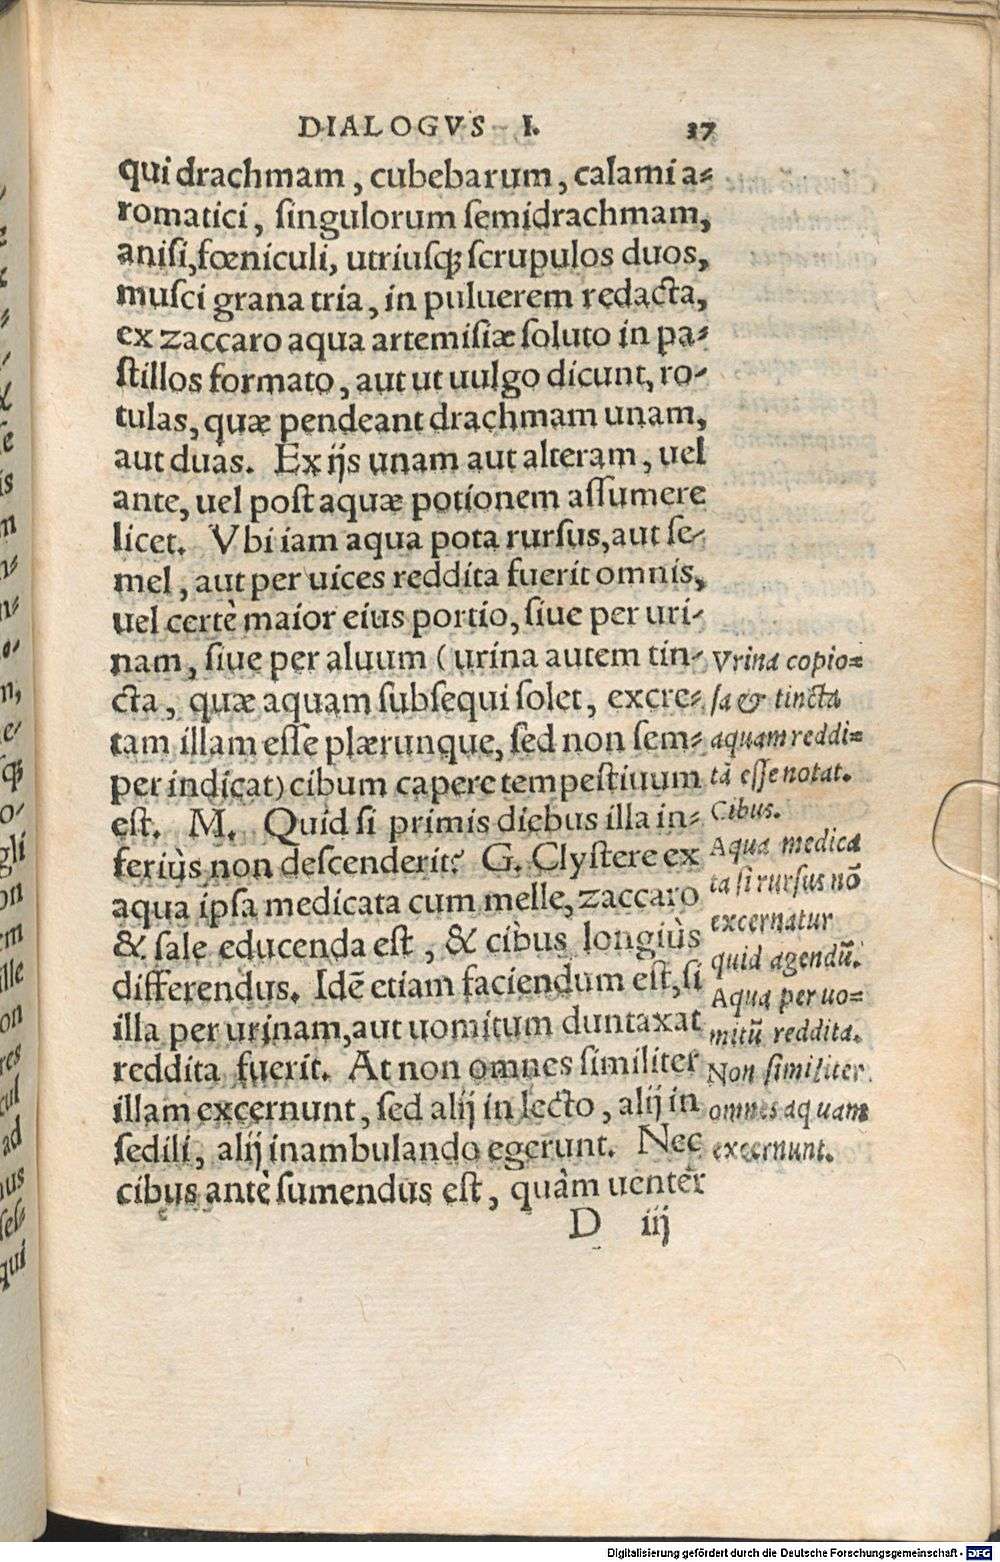 DIALOGVS I. 37
qui drachmam, cubebarum, calami a-
romatici, ſingulorum ſemidrachmam,
aniſi, fœniculi, utriuſq; ſcrupulos duos,
muſci grana tria, in puluerem redacta,
ex zaccaro aqua artemiſiæ ſoluto in pa-
ſtillos formato, aut ut uulgo dicunt, ro-
tulas, quæ pendeant drachmam unam,
aut duas. Ex ijs unam aut alteram, uel
ante, uel poſt aquæ potionem aſſumere
licet. Vbi iam aqua pota rurſus, aut ſe-
mel, aut per uices reddita fuerit omnis,
uel certè maior eius portio, ſiue per uri-
nam, ſiue per aluum (urina autem tin-
cta, quæ aquam ſubſequi ſolet, excre-
tam illam eſſe plærunque, ſed non ſem-
per indicat) cibum capere tempeſtiuum
eſt. M. Quid ſi primis diebus illa in-
feriùs non deſcenderit? G. Clyſtere ex
aqua ipſa medicata cum melle, zaccaro
& ſale educenda eſt, & cibus longiùs
differendus. Idē etiam faciendum eſt, ſi
illa per urinam, aut uomitum duntaxat
reddita fuerit. At non omnes ſimiliter
illam excernunt, ſed alij in lecto, alij in
ſedili, alij inambulando egerunt. Nec
cibus antè ſumendus eſt, quàm uenter
D iij
Vrina copio-
ſa & tincta
aquam reddi-
tā eſſe notat.
Cibus.
Aqua medica
ta ſi rurſus nō
excernatur
quid agendū.
Aqua per uo-
mitū reddita.
Non ſimiliter
omnes aquam
excernunt.
Digitalisierung gefördert durch die Deutsche Forschungsgemeinschaft - DFG